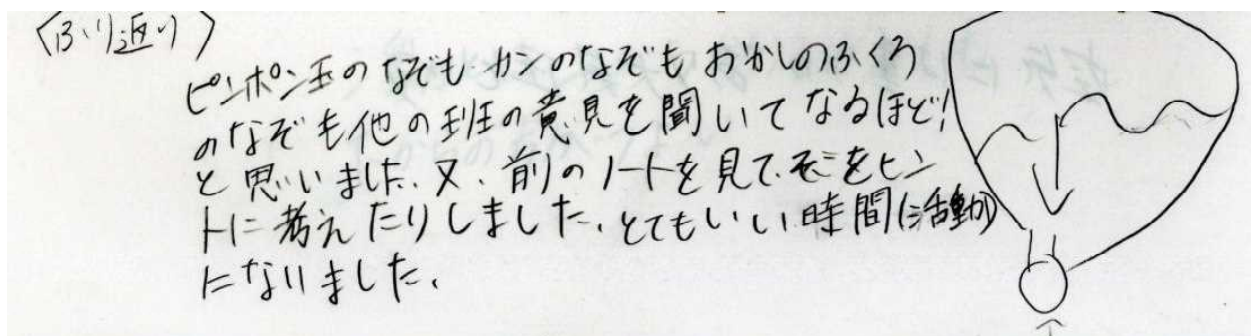 〈ふり返り〉
ピンポン玉のなぞもカンのなぞもおかしのふくろ
のなぞも他の班の意見を聞いてなるほど!
と思いました。又、前のノートを見て、そこをヒン
トに考えたりしました。とてもいい時間(活動)
になりました。